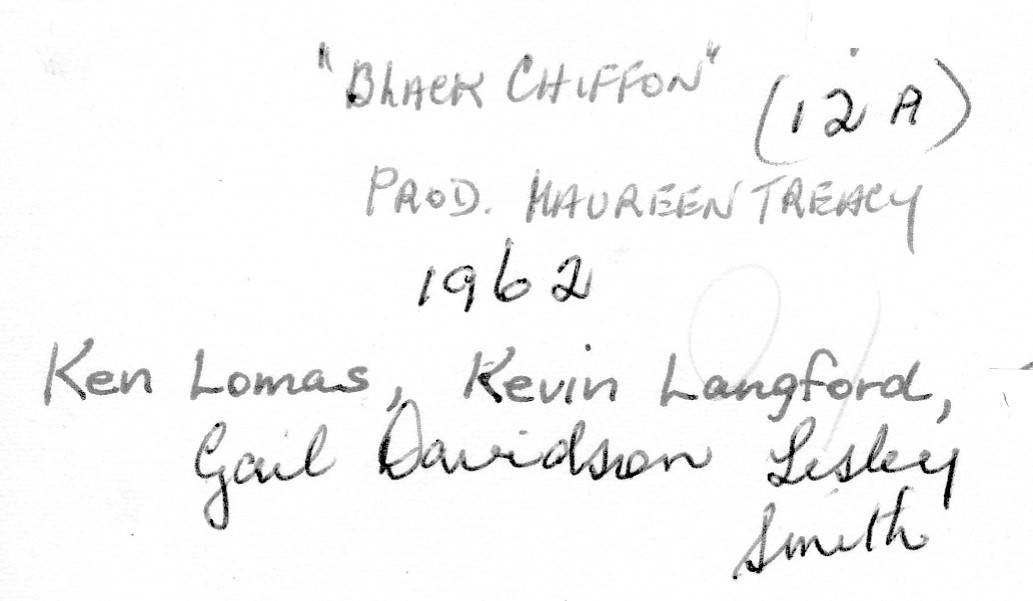 "BLACK CHIFFON" (12A)
PROD. MAUREEN TREACY
1962
Ken Lomas, Kevin Langford,
Gail Davidson Lesley
Smith